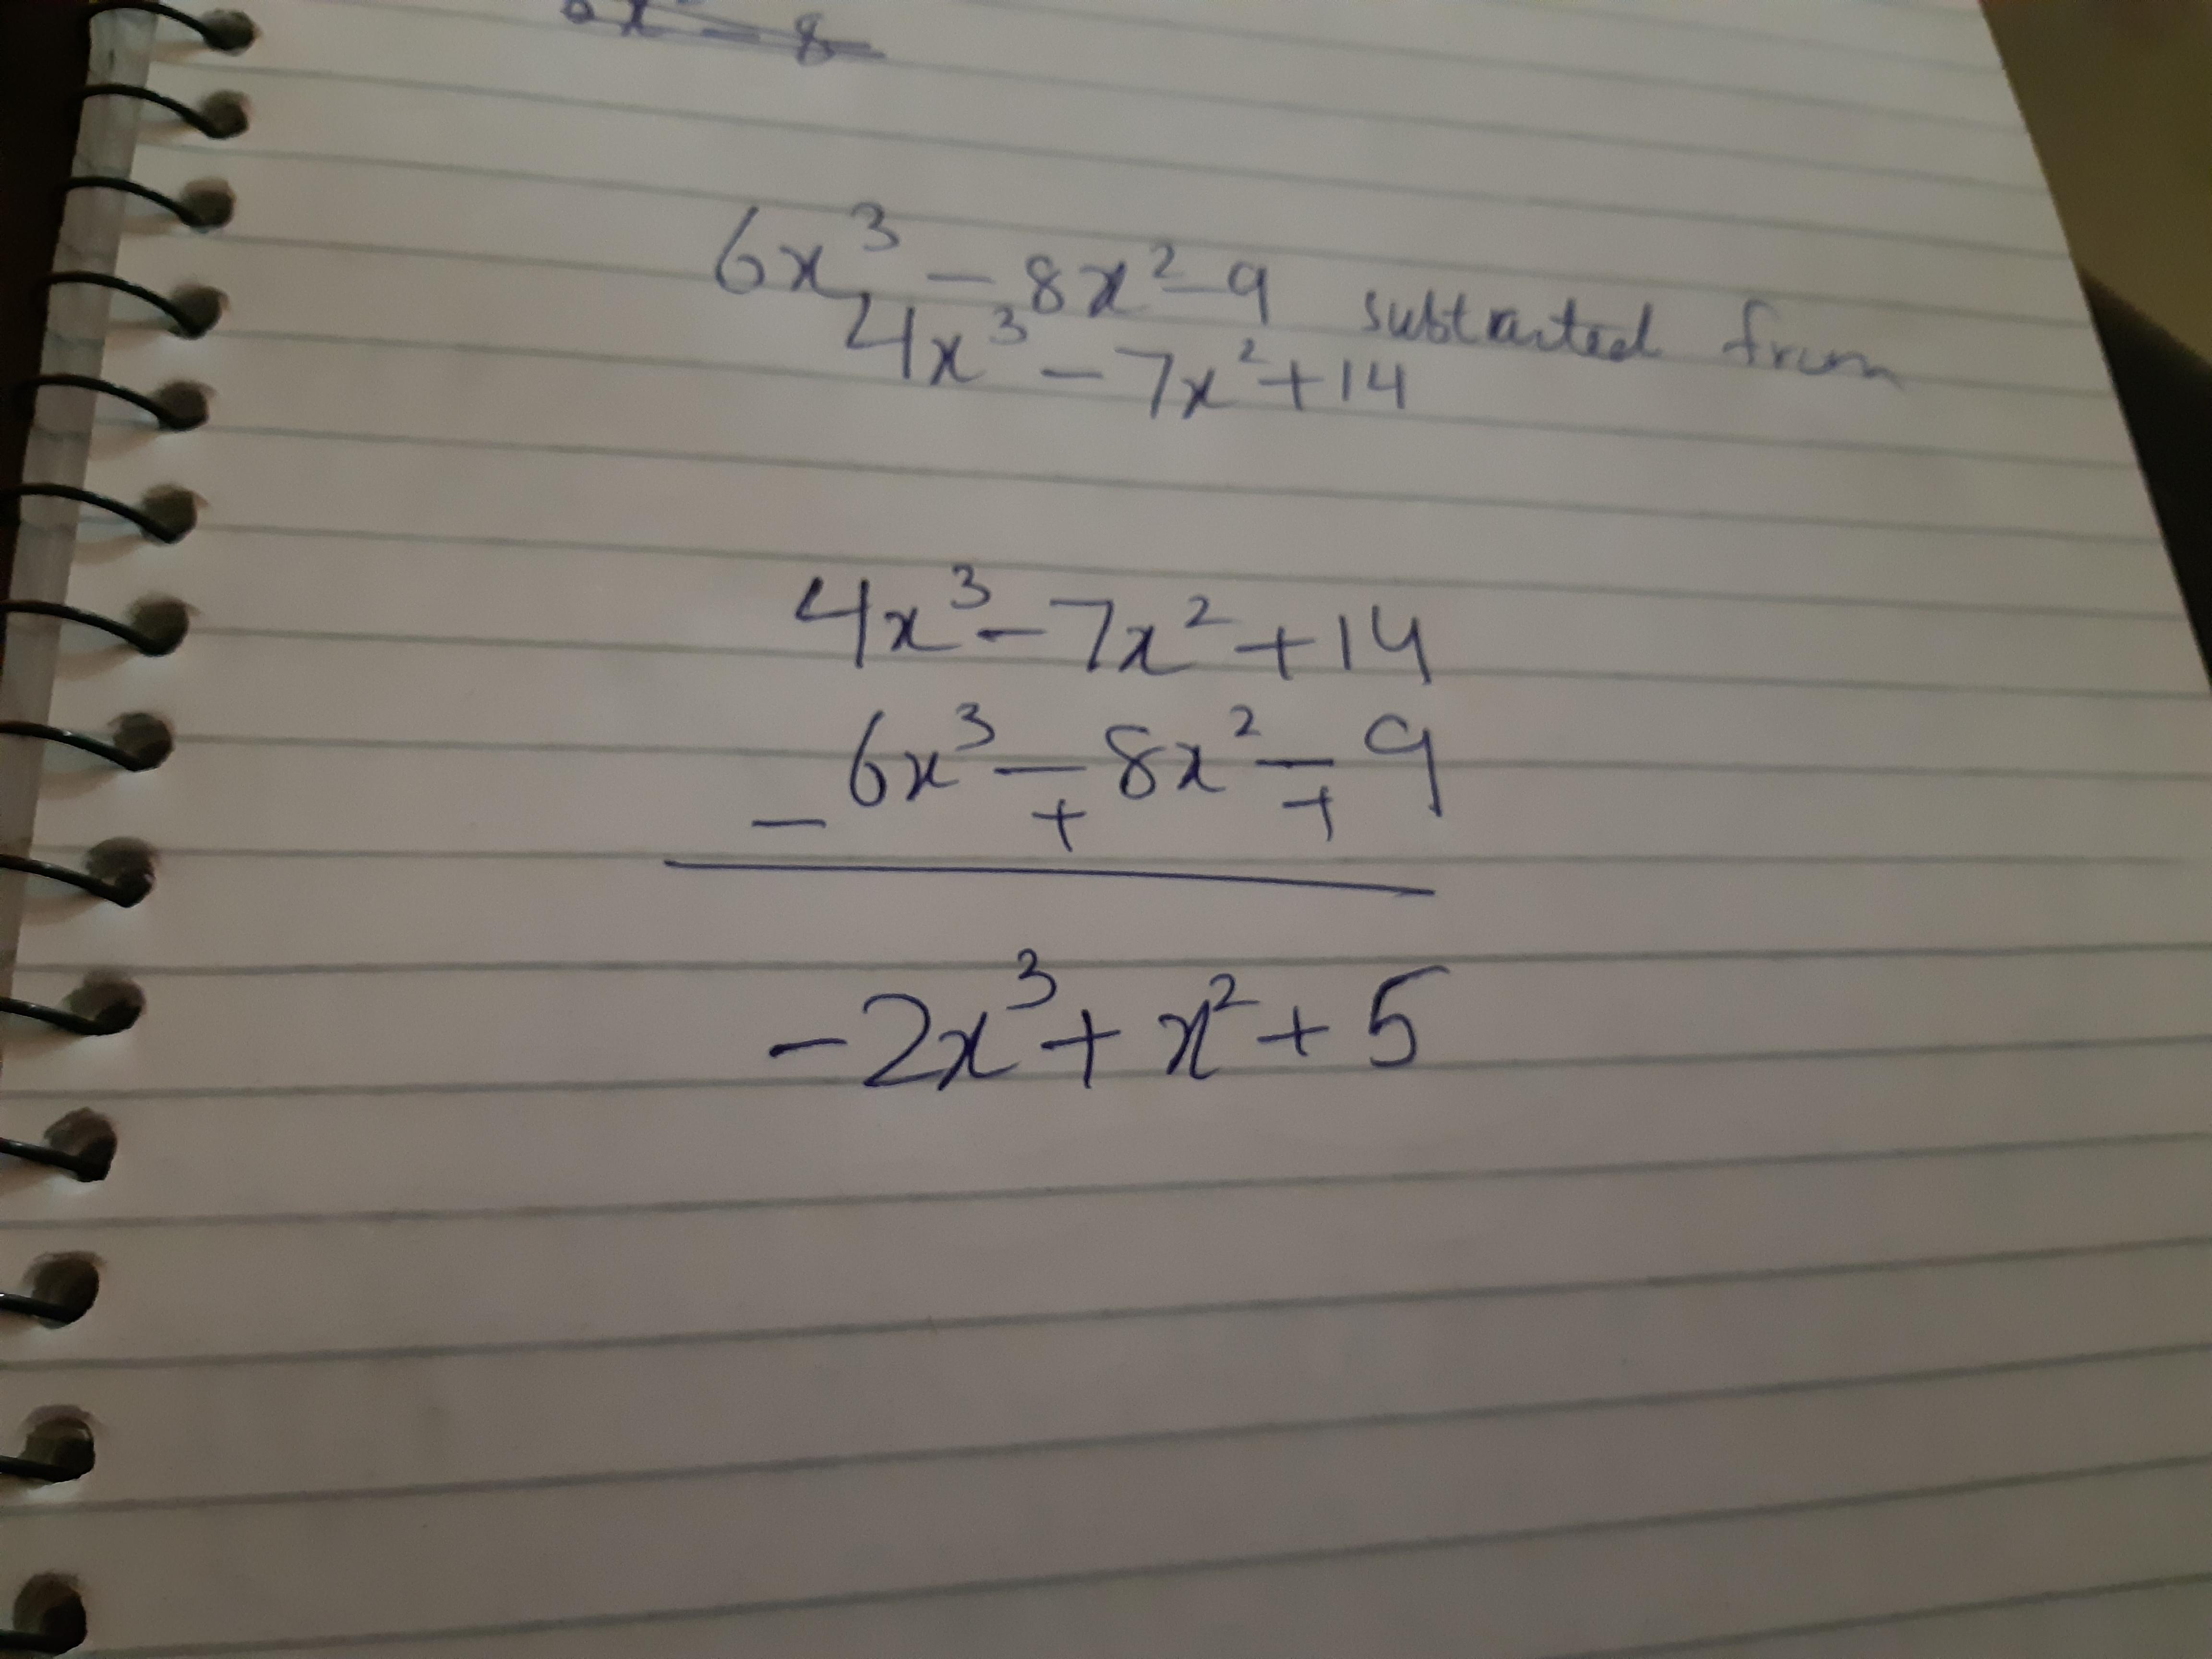 6x³ - 8x² - 9 subtracted from
4x³ - 7x² + 14
4x³ - 7x² + 14
6x³ - 8x² - 9
- + +
-2x³ + x² + 5